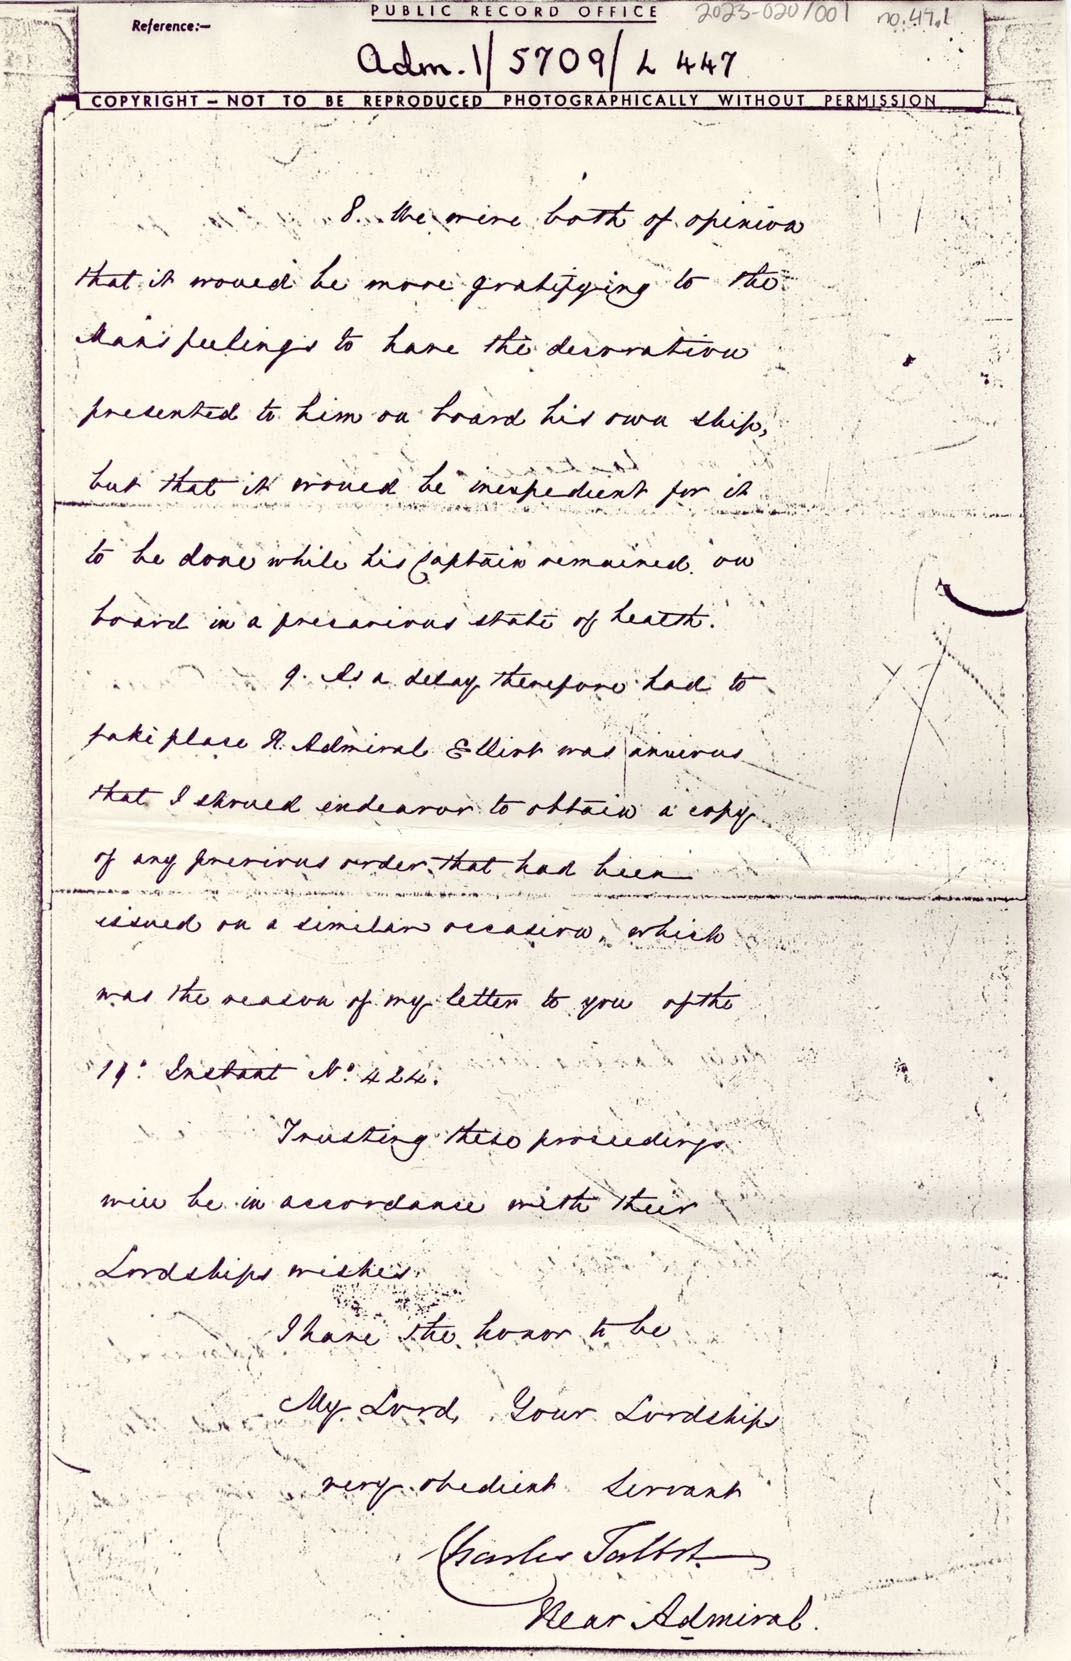 PUBLIC RECORD OFFICE
2023-020/001 no.47.1
Reference:—
Adm. 1/5709/L 447
COPYRIGHT — NOT TO BE REPRODUCED PHOTOGRAPHICALLY WITHOUT PERMISSION
8. We were both of opinion
that it would be more gratifying to the
Man's feelings to have the decoration
presented to him on board his own ship,
but that it would be inexpedient for it
to be done while his Captain remained on
board in a precarious state of health.
9. As a delay therefore had to
take place R. Admiral Elliot was anxious
that I should endeavor to obtain a copy
of any previous order that had been
issued on a similar occasion, which
was the reason of my letter to you of the
19th Instant No. 424.
Trusting these proceedings
will be in accordance with their
Lordships wishes.
I have the honor to be
My Lord, Your Lordships
very obedient Servant
Charles Talbot.
Rear Admiral.